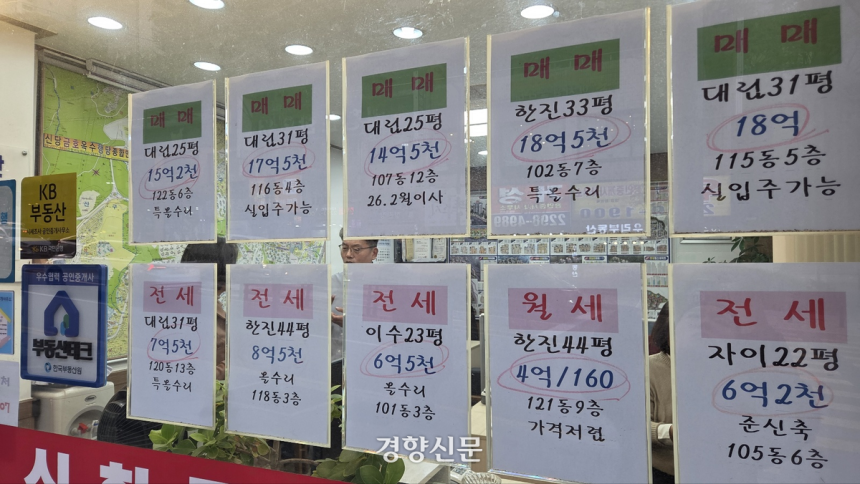 매매
대림25평
15억2천
122동6층
특올수리
매매
대림31평
17억5천
116동4층
실입주가능
매매
대림25평
14억5천
107동12층
26.2월이사
매매
한진33평
18억5천
102동7층
특올수리
매매
대림31평
18억
115동5층
실입주가능
전세
대림31평
7억5천
120동13층
특올수리
전세
한진44평
8억5천
올수리
118동3층
전세
이수23평
6억5천
올수리
101동3층
월세
한진44평
4억/160
121동9층
가격저렴
전세
자이22평
6억2천
준신축
105동6층
KB
부동산
우수협력 공인중개사
부동산테크
한국부동산원
우리부동산
경향신문